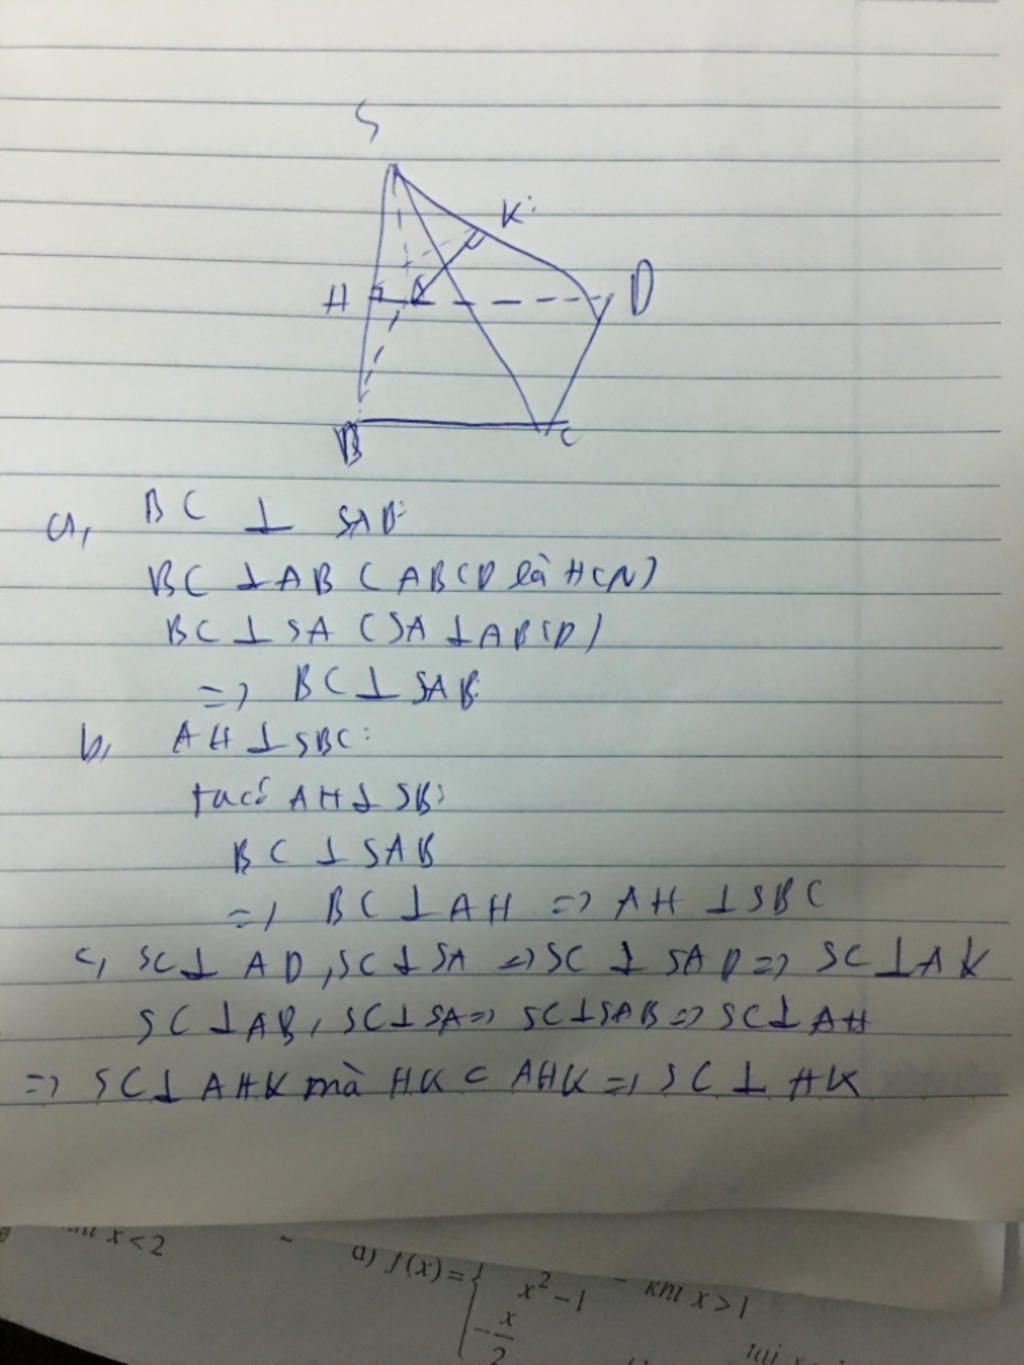 S
K
H A D
B C
a, BC ⊥ SAB
BC ⊥ AB (ABCD là HCN)
BC ⊥ SA (SA ⊥ ABCD)
=> BC ⊥ SAB
b, AH ⊥ SBC:
ta có AH ⊥ SB:
BC ⊥ SAB
=> BC ⊥ AH => AH ⊥ SBC
c, SC ⊥ AD, SC ⊥ SA => SC ⊥ SAD => SC ⊥ AK
SC ⊥ AB, SC ⊥ SA => SC ⊥ SAB => SC ⊥ AH
=> SC ⊥ AHK mà HK ⊂ AHK => SC ⊥ HK
x < 2
a) f(x) = { x² – 1 khi x > 1
–x/2
tại